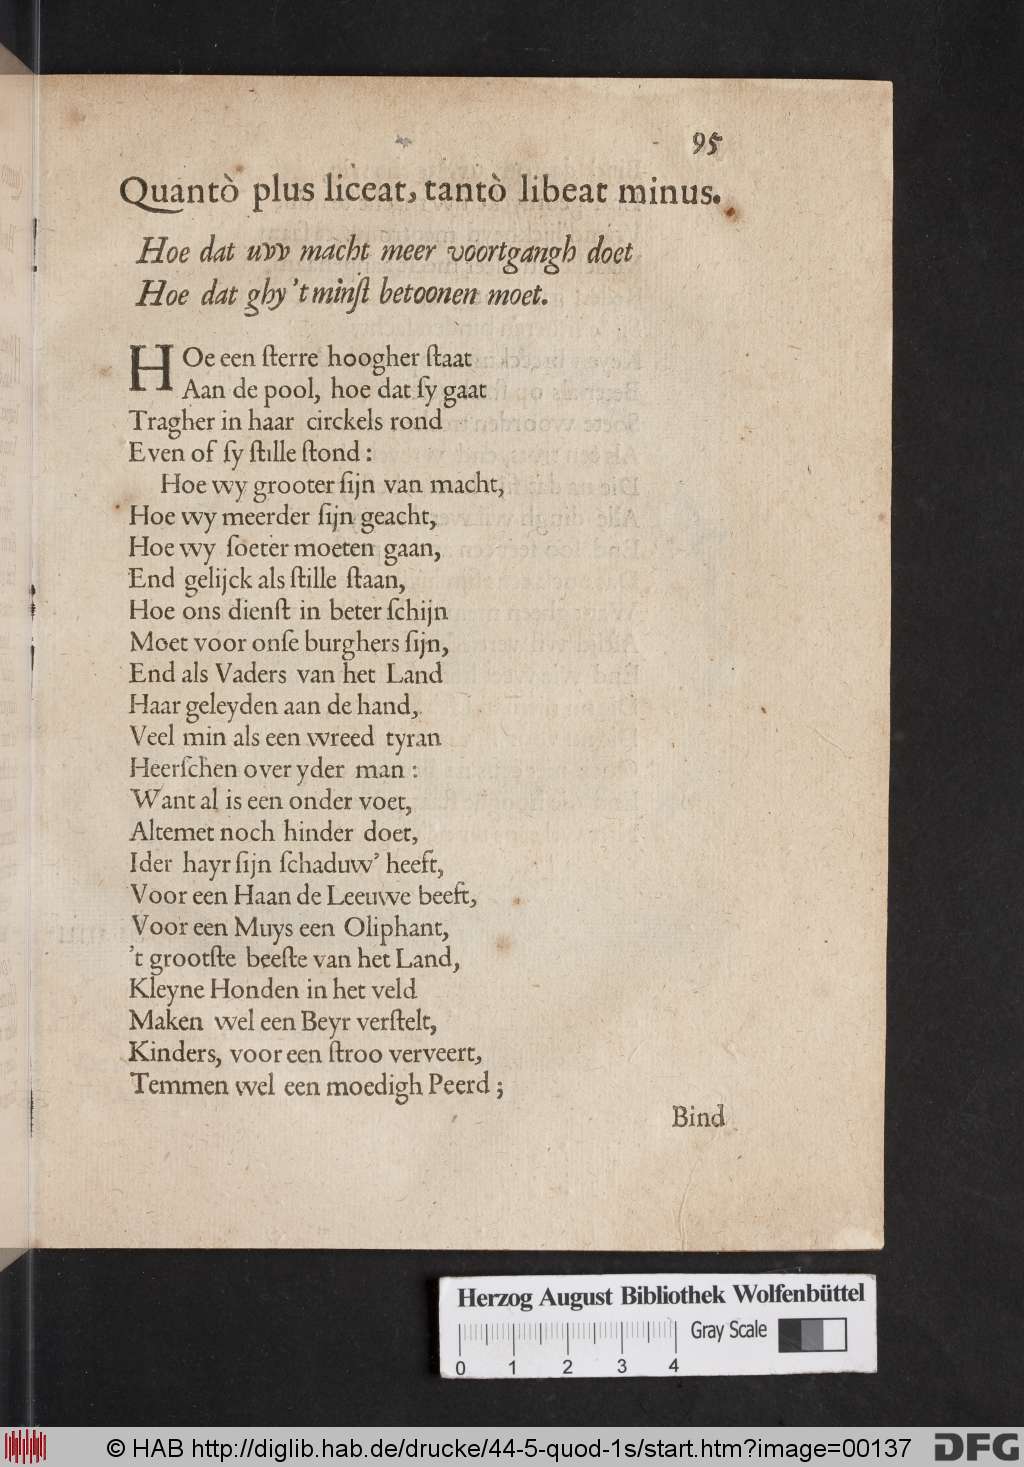 95
Quantò plus liceat, tantò libeat minus.
Hoe dat uvv macht meer voortgangh doet
Hoe dat ghy 't minſt betoonen moet.
HOe een ſterre hoogher ſtaat
Aan de pool, hoe dat ſy gaat
Tragher in haar circkels rond
Even of ſy ſtille ſtond :
Hoe wy grooter ſijn van macht,
Hoe wy meerder ſijn geacht,
Hoe wy ſoeter moeten gaan,
End gelijck als ſtille ſtaan,
Hoe ons dienſt in beter ſchijn
Moet voor onſe burghers ſijn,
End als Vaders van het Land
Haar geleyden aan de hand,
Veel min als een wreed tyran
Heerſchen over yder man :
Want al is een onder voet,
Altemet noch hinder doet,
Ider hayr ſijn ſchaduw' heeft,
Voor een Haan de Leeuwe beeft,
Voor een Muys een Oliphant,
't grootſte beeſte van het Land,
Kleyne Honden in het veld
Maken wel een Beyr verſtelt,
Kinders, voor een ſtroo verveert,
Temmen wel een moedigh Peerd ;
Bind
Herzog August Bibliothek Wolfenbüttel
Gray Scale
0 1 2 3 4
© HAB http://diglib.hab.de/drucke/44-5-quod-1s/start.htm?image=00137
DFG